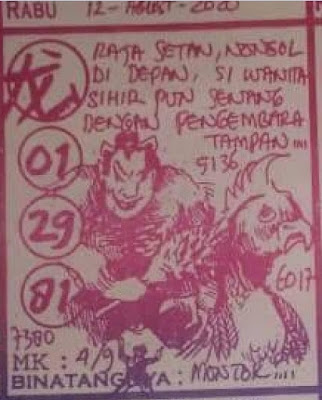 RABU 12-AGUST-2020
龙
RAJA SETAN, NONGOL
DI DEPAN, SI WANITA
SIHIR PUN SENANG
DENGAN PENGEMBARA
TAMPAN....
01
9136
29
81
6017
7380
MK : 4/9
BINATANGNYA : MONTOK....